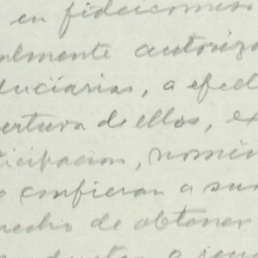 en fideicomiso
almente autoriza
duciarias, a efect
ertura de ellos, ex
ticipacion, nomin
o confieran a su
recho de obtener